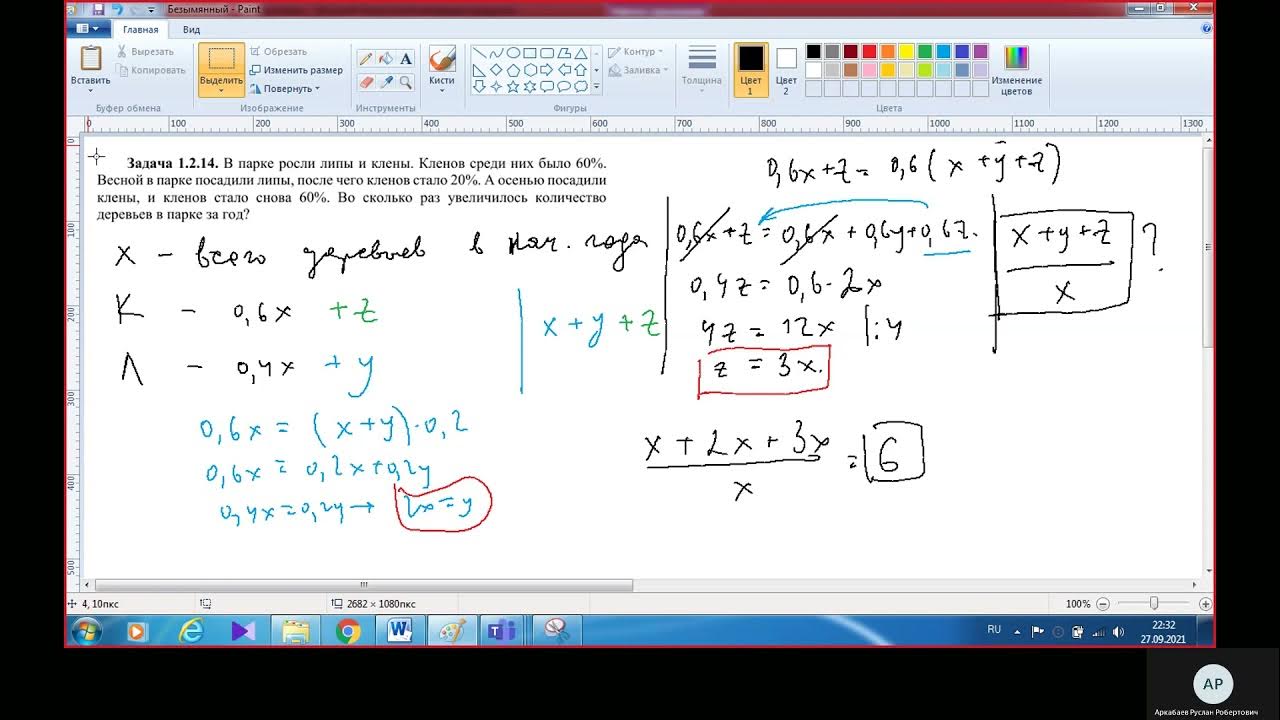 Безымянный - Paint
Главная
Вид
Вставить
Вырезать
Копировать
Буфер обмена
Выделить
Обрезать
Изменить размер
Повернуть
Изображение
Инструменты
Кисти
Контур
Заливка
Фигуры
Толщина
Цвет 1
Цвет 2
Цвета
Изменение цветов
0 100 200 300 400 500 600 700 800 900 1000 1100 1200 1300
0
100
200
300
400
500
Задача 1.2.14. В парке росли липы и клены. Кленов среди них было 60%.
Весной в парке посадили липы, после чего кленов стало 20%. А осенью посадили
клены, и кленов стало снова 60%. Во сколько раз увеличилось количество
деревьев в парке за год?
X – всего деревьев в нач. года
К – 0,6x + z
Л – 0,4x + y
x + y + z
0,6x = (x+y)·0,2
0,6x = 0,2x+0,2y
0,4x=0,2y → 2x=y
0,6x+z = 0,6(x+y+z)
0,6x+z = 0,6x + 0,6y+0,6z.
0,4z = 0,6·2x
4z = 12x |:4
z = 3x.
x+y+z
x
?
x + 2x + 3x
x
= 6
4, 10пкс
2682 × 1080пкс
100%
RU
22:32
27.09.2021
АР
Аркабаев Руслан Робертович